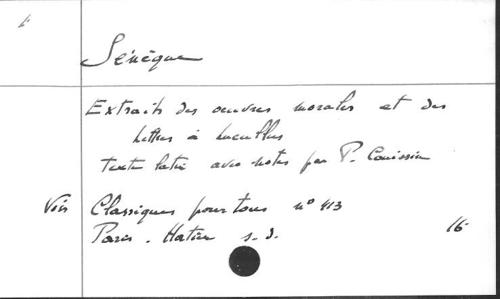 Sénèque
Extraits des oeuvres morales et des
lettres à Lucullus
texte latin avec notes par P. Couissin
Voir Classiques pour tous n° 413
Paris. Hatier s. d. 16-